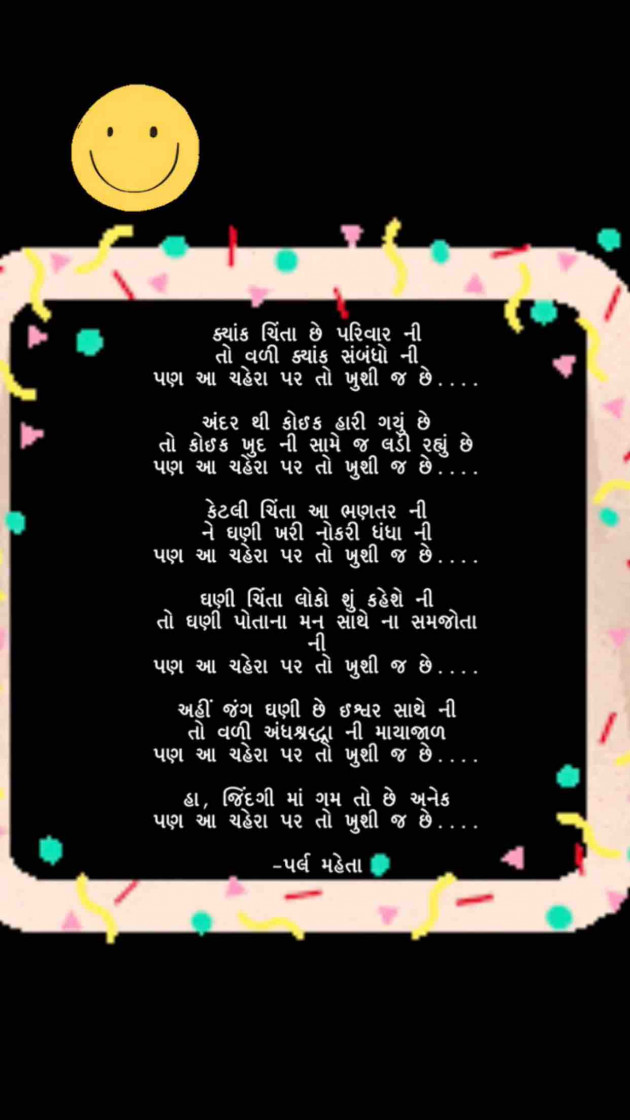 ક્યાંક ચિંતા છે પરિવાર ની
તો વળી ક્યાંક સંબંધો ની
પણ આ ચહેરા પર તો ખુશી જ છે....
અંદર થી કોઈક હારી ગયું છે
તો કોઈક ખુદ ની સામે જ લડી રહ્યું છે
પણ આ ચહેરા પર તો ખુશી જ છે....
કેટલી ચિંતા આ ભણતર ની
ને ઘણી ખરી નોકરી ધંધા ની
પણ આ ચહેરા પર તો ખુશી જ છે....
ઘણી ચિંતા લોકો શું કહેશે ની
તો ઘણી પોતાના મન સાથે ના સમજોતા
ની
પણ આ ચહેરા પર તો ખુશી જ છે....
અહીં જંગ ઘણી છે ઈશ્વર સાથે ની
તો વળી અંધશ્રદ્ધા ની માયાજાળ
પણ આ ચહેરા પર તો ખુશી જ છે....
હા, જિંદગી માં ગમ તો છે અનેક
પણ આ ચહેરા પર તો ખુશી જ છે....
-પર્લ મહેતા